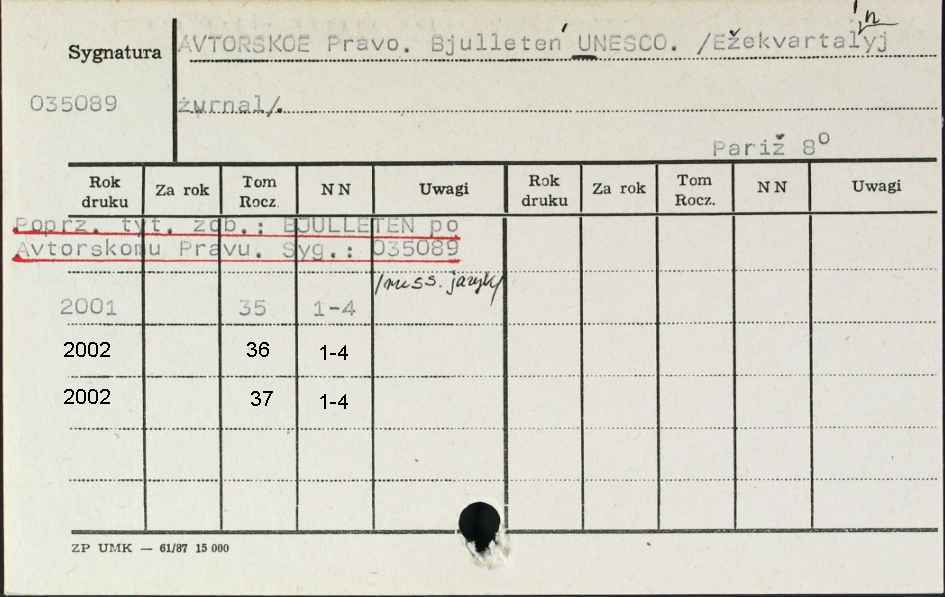 Sygnatura
AVTORSKOE Pravo. Bjulleteń UNESCO. /Ežekvartal'nyj
035089
żurnal/.
Pariž 8º
Rok druku Za rok Tom Rocz. NN Uwagi Rok druku Za rok Tom Rocz. NN Uwagi
Poprz. tyt. zdb.: BJULLETEN po
Avtorskomu Pravu. Syg.: 035089
/russ. jazyk/
2001 35 1-4
2002 36 1-4
2002 37 1-4
ZP UMK — 61/87 15 000